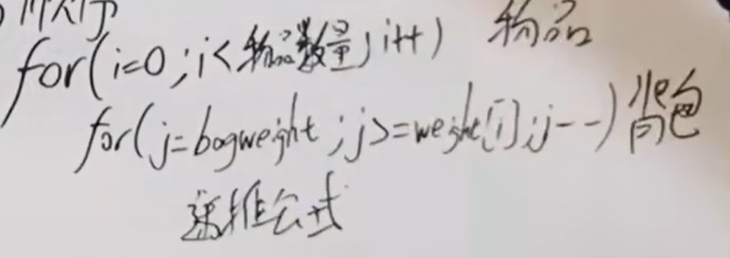 for(i=0;i<物品数量;i++) 物品
for(j=bagweight;j>=weight[i];j--)背包
递推公式